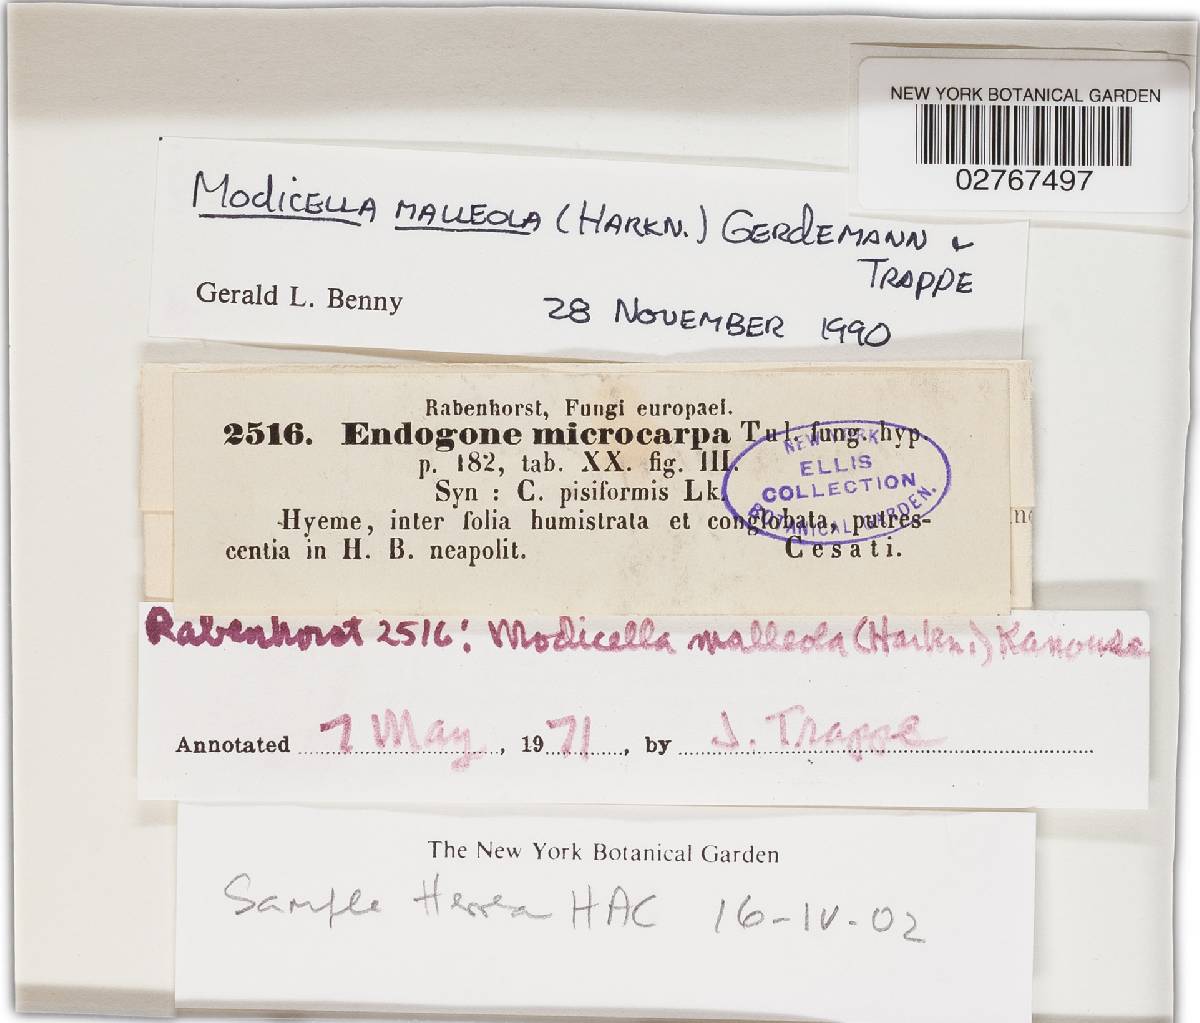 NEW YORK BOTANICAL GARDEN
02767497
Modicella malleola (Harkn.) Gerdemann &
Trappe
Gerald L. Benny 28 November 1990
Rabenhorst, Fungi europaei.
2516. Endogone microcarpa Tul. fung. hyp.
p. 182, tab. XX. fig. III.
Syn : C. pisiformis Lk.
Hyeme, inter folia humistrata et conglobata, putres-
centia in H. B. neapolit. Cesati.
NEW YORK
ELLIS
COLLECTION
BOTANICAL GARDEN.
Rabenhorst 2516: Modicella malleola (Harkn.) Kanouse
Annotated 7 May, 1971, by J. Trappe
The New York Botanical Garden
Sample Herrera HAC 16-IV-02